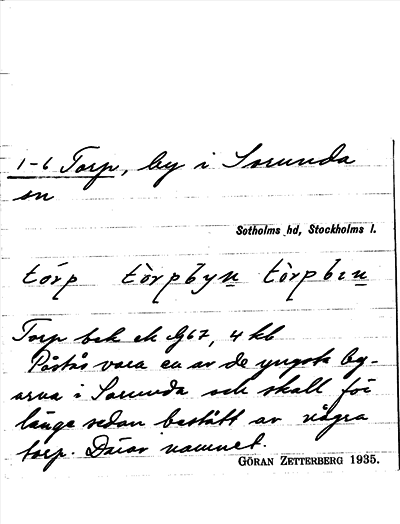 1-6 Torp, by i Sorunda
sn
Sotholms hd, Stockholms l.
tórp tòrpbyn tòrpbın
Torp bek ek G67, 4 kb
Påstås vara en av de yngsta by-
arna i Sorunda och skall för
länge sedan bestått av några
torp. Därav namnet.
GÖRAN ZETTERBERG 1935.